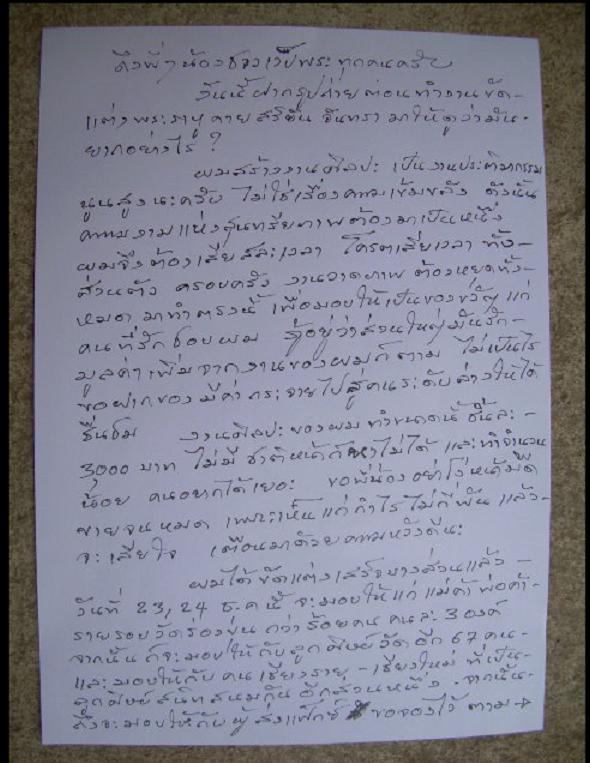 ถึงพี่ๆน้องชาวเว็ปพระทุกคนครับ
วันนี้ฝากรูปถ่ายตอนทำงานขัด-
แต่งพระราหู กายสุริยัน จันทรา มาให้ดูว่ามัน-
ยากอย่างไร ?
ผมสร้างงานศิลปะ เป็นงานประติมากรรม
นูนสูงนะครับ ไม่ใช่เรื่องความเข้มขลัง ดังนั้น
ความงามแห่งสุนทรียภาพต้องมาเป็นหนึ่ง
ผมจึงต้องเสียสละเวลา โคตรเสียเวลา ทั้ง-
ส่วนตัว ครอบครัว งานวาดภาพ ต้องหยุดทั้ง-
หมด มาทำตรงนี้ เพื่อมอบให้เป็นของขวัญ แก่
คนที่รักชอบผม รู้อยู่ว่าส่วนใหญ่มันรัก-
มูลค่าเพิ่มจากงานของผมก็ตาม ไม่เป็นไร
ขอฝากของมีค่ากระจายไปสู่คนระดับล่างให้ได้
ชื่นชม งานศิลปะของผม ทำขนาดนี้ ชิ้นละ -
3,000 บาท ไม่มี ชาติหน้าก็หาไม่ได้ และทำจำนวน
น้อย คนอยากได้เยอะ ขอพี่น้องอย่าโง่หน้ามืด
ขายจนหมด เพราะเห็นแก่กำไร ไม่กี่พัน แล้ว-
จะเสียใจ เตือนมาด้วยความหวังดีนะ
ผมได้ขัดแต่งเสร็จบางส่วนแล้ว -
วันที่ 23, 24 ธ.ค นี้ จะมอบให้แก่ แม่ค้า พ่อค้า -
รายรอบวัดร่องขุ่น กว่าร้อยคน คนละ 3 องค์
จากนั้น ก็จะมอบให้กับลูกศิษย์วัดอีก 67 คน -
และมอบให้กับ คนเชียงราย - เชียงใหม่ ที่เป็น-
ลูกศิษย์สนิทสนมกัน อีกส่วนหนึ่ง . จากนั้น-
ถึงจะมอบให้กับผู้ส่งแฟ็กซ์ ขอจองไว้ ตาม →